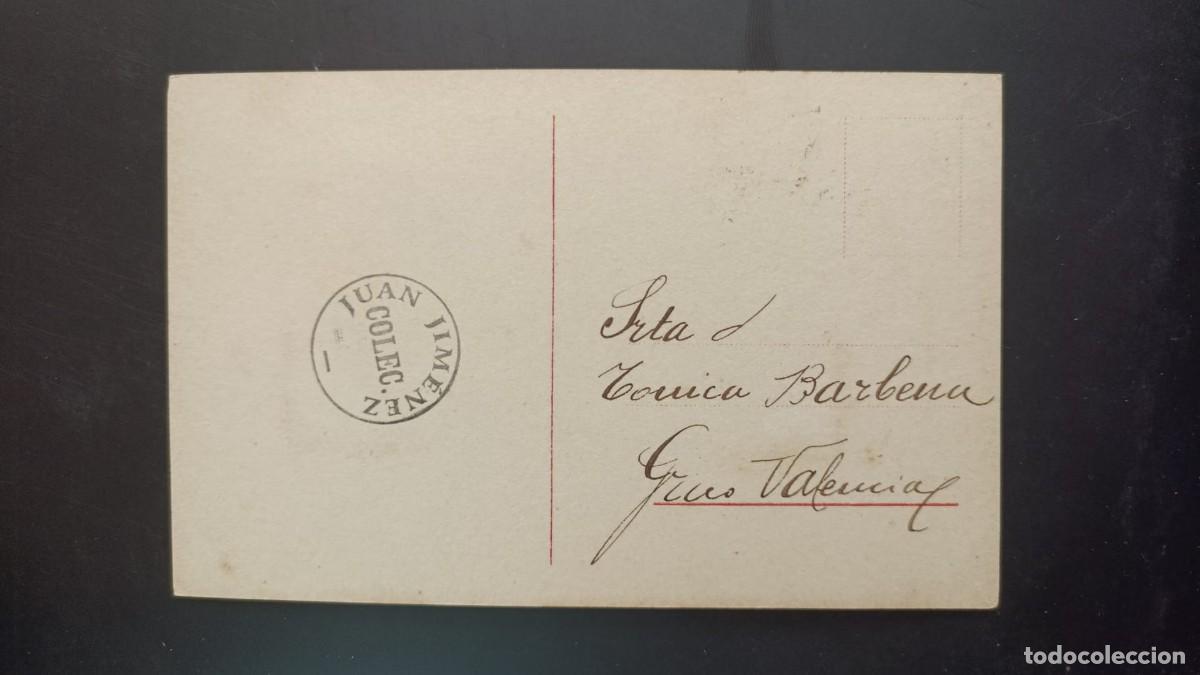 JUAN JIMÉNEZ
COLEC.
Srta d
Tonica Barbena
Valencia
todocoleccion